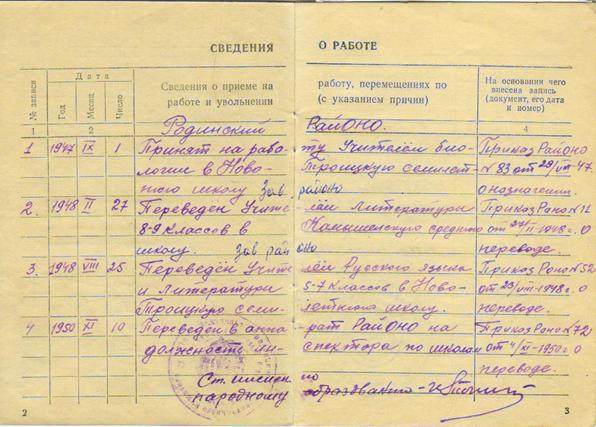 СВЕДЕНИЯ О РАБОТЕ
№ записи
Дата
Год
Месяц
Число
Сведения о приеме на работу, перемещениях по
работе и увольнении (с указанием причин)
На основании чего
внесена запись
(документ, его дата
и номер)
1 2 3 4
Родинский РайОНО.
1 1947 IX 1 Принят на работу Учителем био- Приказ РайОНО
логии в Ново-Троицкую семилет- № 83 от 29/VIII-47.
нюю школу Зав районо о назначении.
2. 1948 II 27 Переведен Учителем Литературы Приказ Роно №12
8-9 классов в среднюю от
школу. Зав районо переводе.
3. 1948 VIII 25 Переведён Учителем Русского языка Приказ Роно №52
и Литературы 5-7 классов в Ново- от 23/VIII-1948 г. о
Троицкую семилетнюю школу. переводе.
4 1950 XI 10 Переведен в аппарат РайОНО на Приказ Роно №72
должность инспектора по школам от 4/XI-1950 г о
Ст. инспек по
народному образованию
2
3